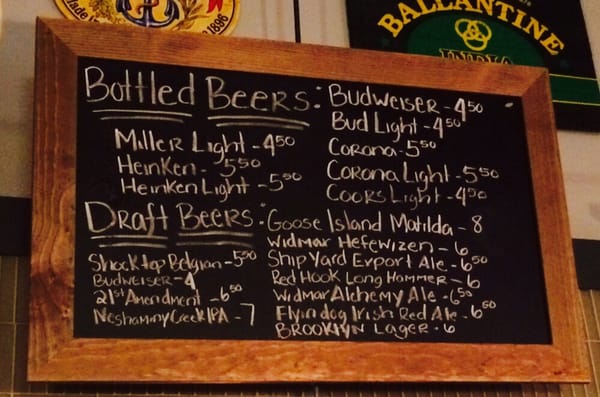 1896
BALLANTINE
INDIA
Bottled Beers:
Miller Light - 4.50
Heinken - 5.50
Heinken Light - 5.50
Budweiser - 4.50
Bud Light - 4.50
Corona - 5.50
Corona Light - 5.50
Coors Light - 4.50
Draft Beers:
Shock top Belgian - 5.50
Budweiser - 4
21st Amendment - 6.50
Neshaminy Creek IPA - 7
Goose Island Matilda - 8
Widmar Hefewizen - 6
Ship Yard Export Ale - 6.50
Red Hook Long Hammer - 6
Widmar Alchemy Ale - 6.50
Flyin dog Irish Red Ale - 6.50
BROOKLYN LAGER - 6